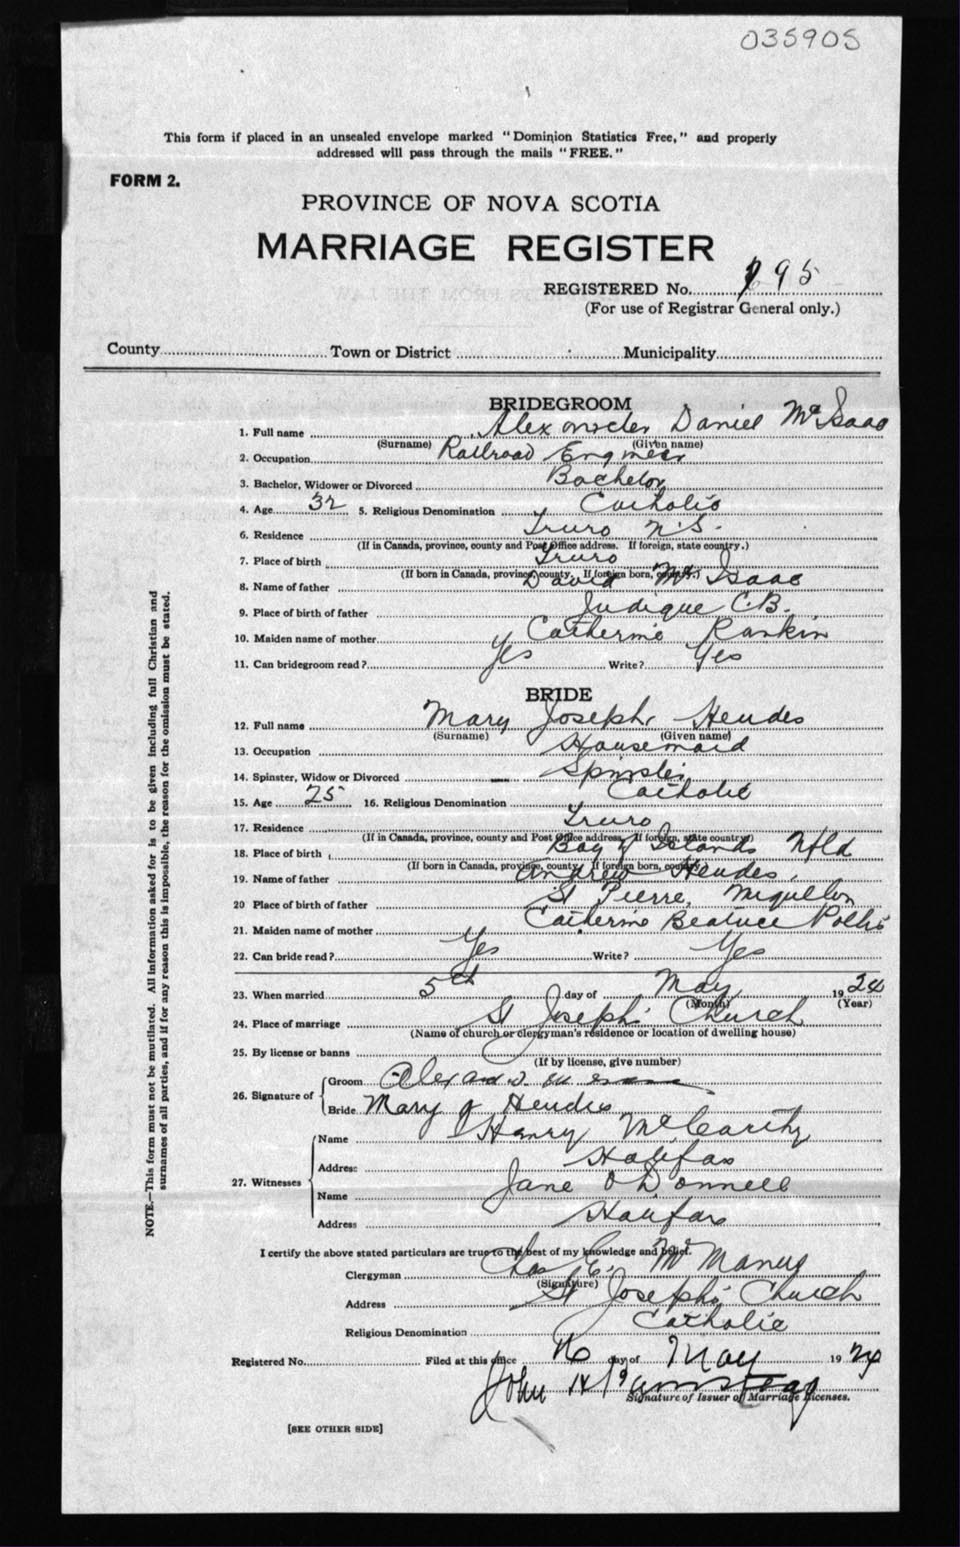 035905
This form if placed in an unsealed envelope marked "Dominion Statistics Free," and properly
addressed will pass through the mails "FREE."
FORM 2.
PROVINCE OF NOVA SCOTIA
MARRIAGE REGISTER
REGISTERED No. 95
(For use of Registrar General only.)
County Town or District Municipality
BRIDEGROOM
1. Full name Alexander Daniel McIsaac
(Surname) (Given name)
2. Occupation Railroad Engineer
3. Bachelor, Widower or Divorced Bachelor
4. Age 32 5. Religious Denomination Catholic
6. Residence Truro N.S.
(If in Canada, province, county and Post Office address. If foreign, state country.)
7. Place of birth Truro
(If born in Canada, province, county. If foreign born, country.)
8. Name of father David McIsaac
9. Place of birth of father Judique C.B.
10. Maiden name of mother Catherine Rankin
11. Can bridegroom read? Yes Write? Yes
BRIDE
12. Full name Mary Joseph Hendes
(Surname) (Given name)
13. Occupation Housemaid
14. Spinster, Widow or Divorced Spinster
15. Age 25 16. Religious Denomination Catholic
17. Residence Truro
(If in Canada, province, county and Post Office address. If foreign, state country)
18. Place of birth Bay of Islands Nfld
(If born in Canada, province, county. If foreign born, country.)
19. Name of father Andrew Hendes
20 Place of birth of father St Pierre, Miquellon
21. Maiden name of mother Catherine Beatrice
22. Can bride read? Yes Write? Yes
23. When married 5th day of May 1924
(Month) (Year)
24. Place of marriage St Joseph's Church
(Name of church or clergyman's residence or location of dwelling house)
25. By license or banns
(If by license, give number)
26. Signature of Groom
Bride Mary J Hendes
27. Witnesses Name Henry McCarthy
Address Halifax
Name Jane O'Donnell
Address Halifax
I certify the above stated particulars are true to the best of my knowledge and belief.
Clergyman Chas E. McManus
(Signature)
Address St Joseph's Church
Religious Denomination Catholic
Registered No. Filed at this office day of May 1924
John
Signature of Issuer of Marriage Licenses.
[SEE OTHER SIDE]
NOTE.—This form must not be mutilated. All information asked for is to be given including full Christian and
surnames of all parties, and if for any reason this is impossible, the reason for the omission must be stated.